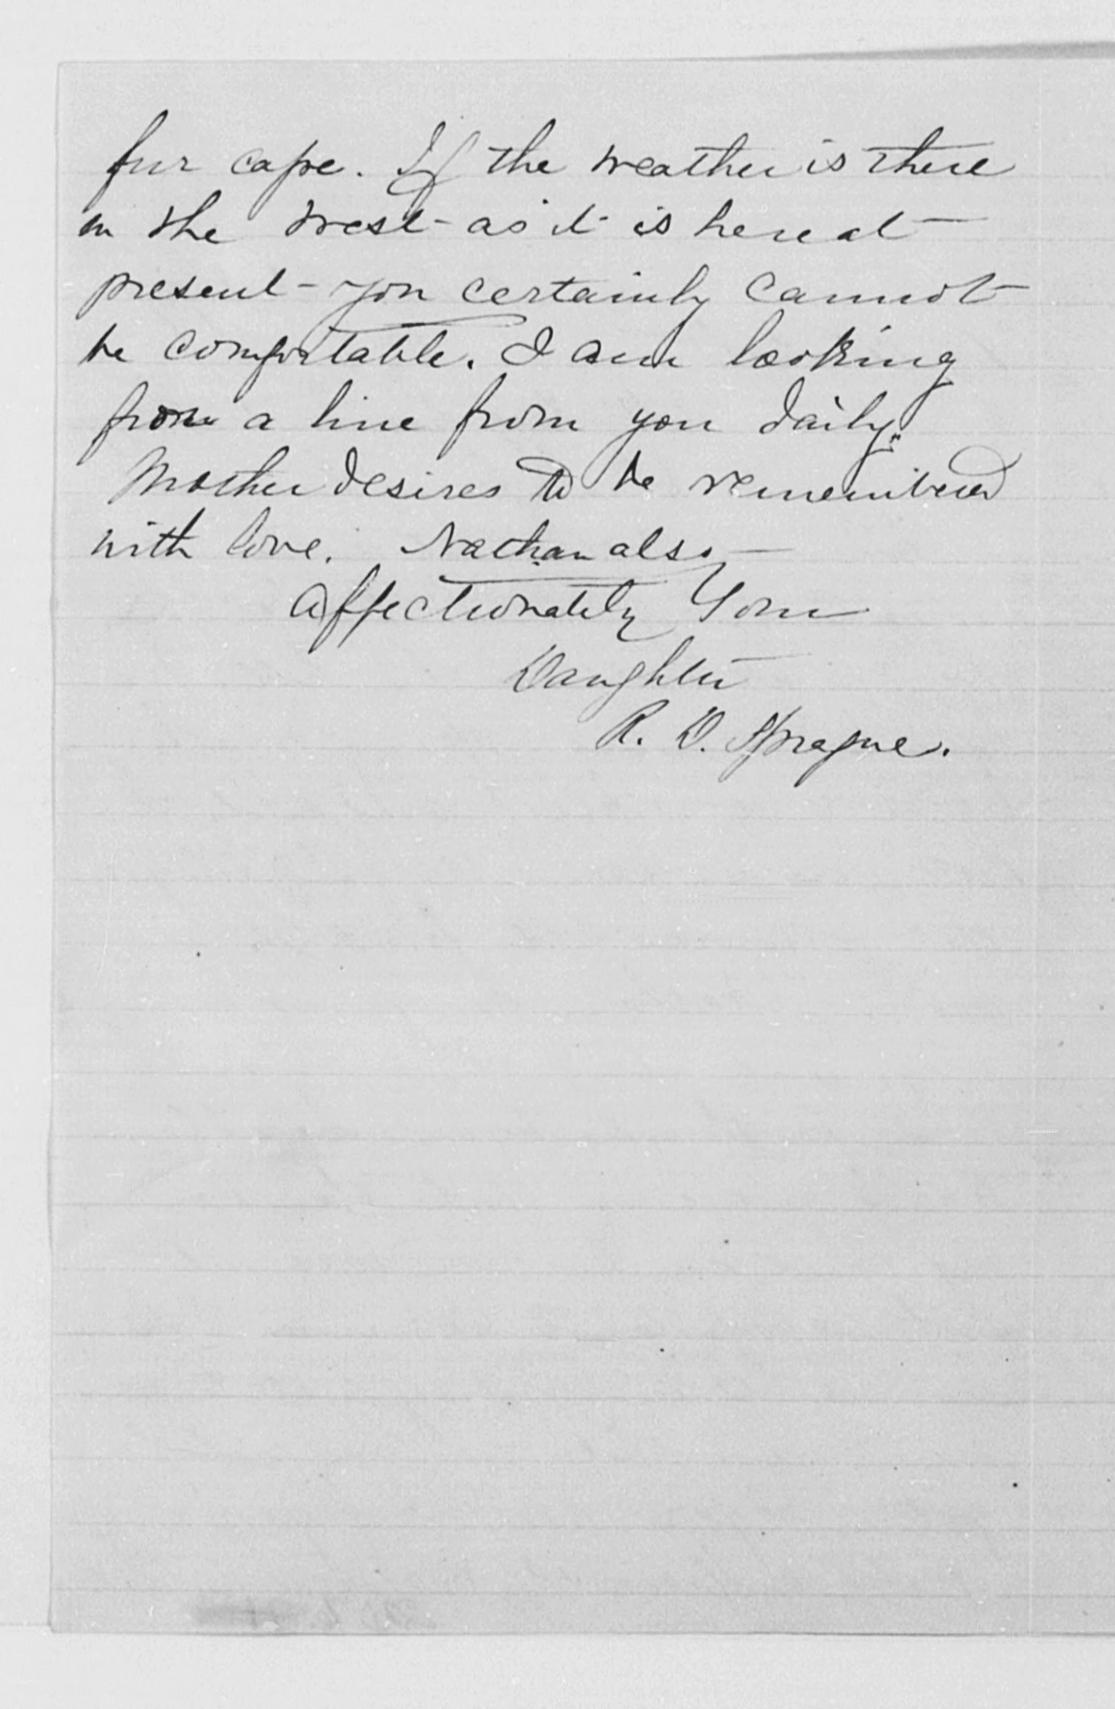 fur cape. If the weather is there
in the West as it is here at
present - you certainly cannot
be comfortable. I am looking
for a line from you daily.
Mother desires to be remembered
with love. Nathan also
Affectionately Your
Daughter
R. D. Sprague.